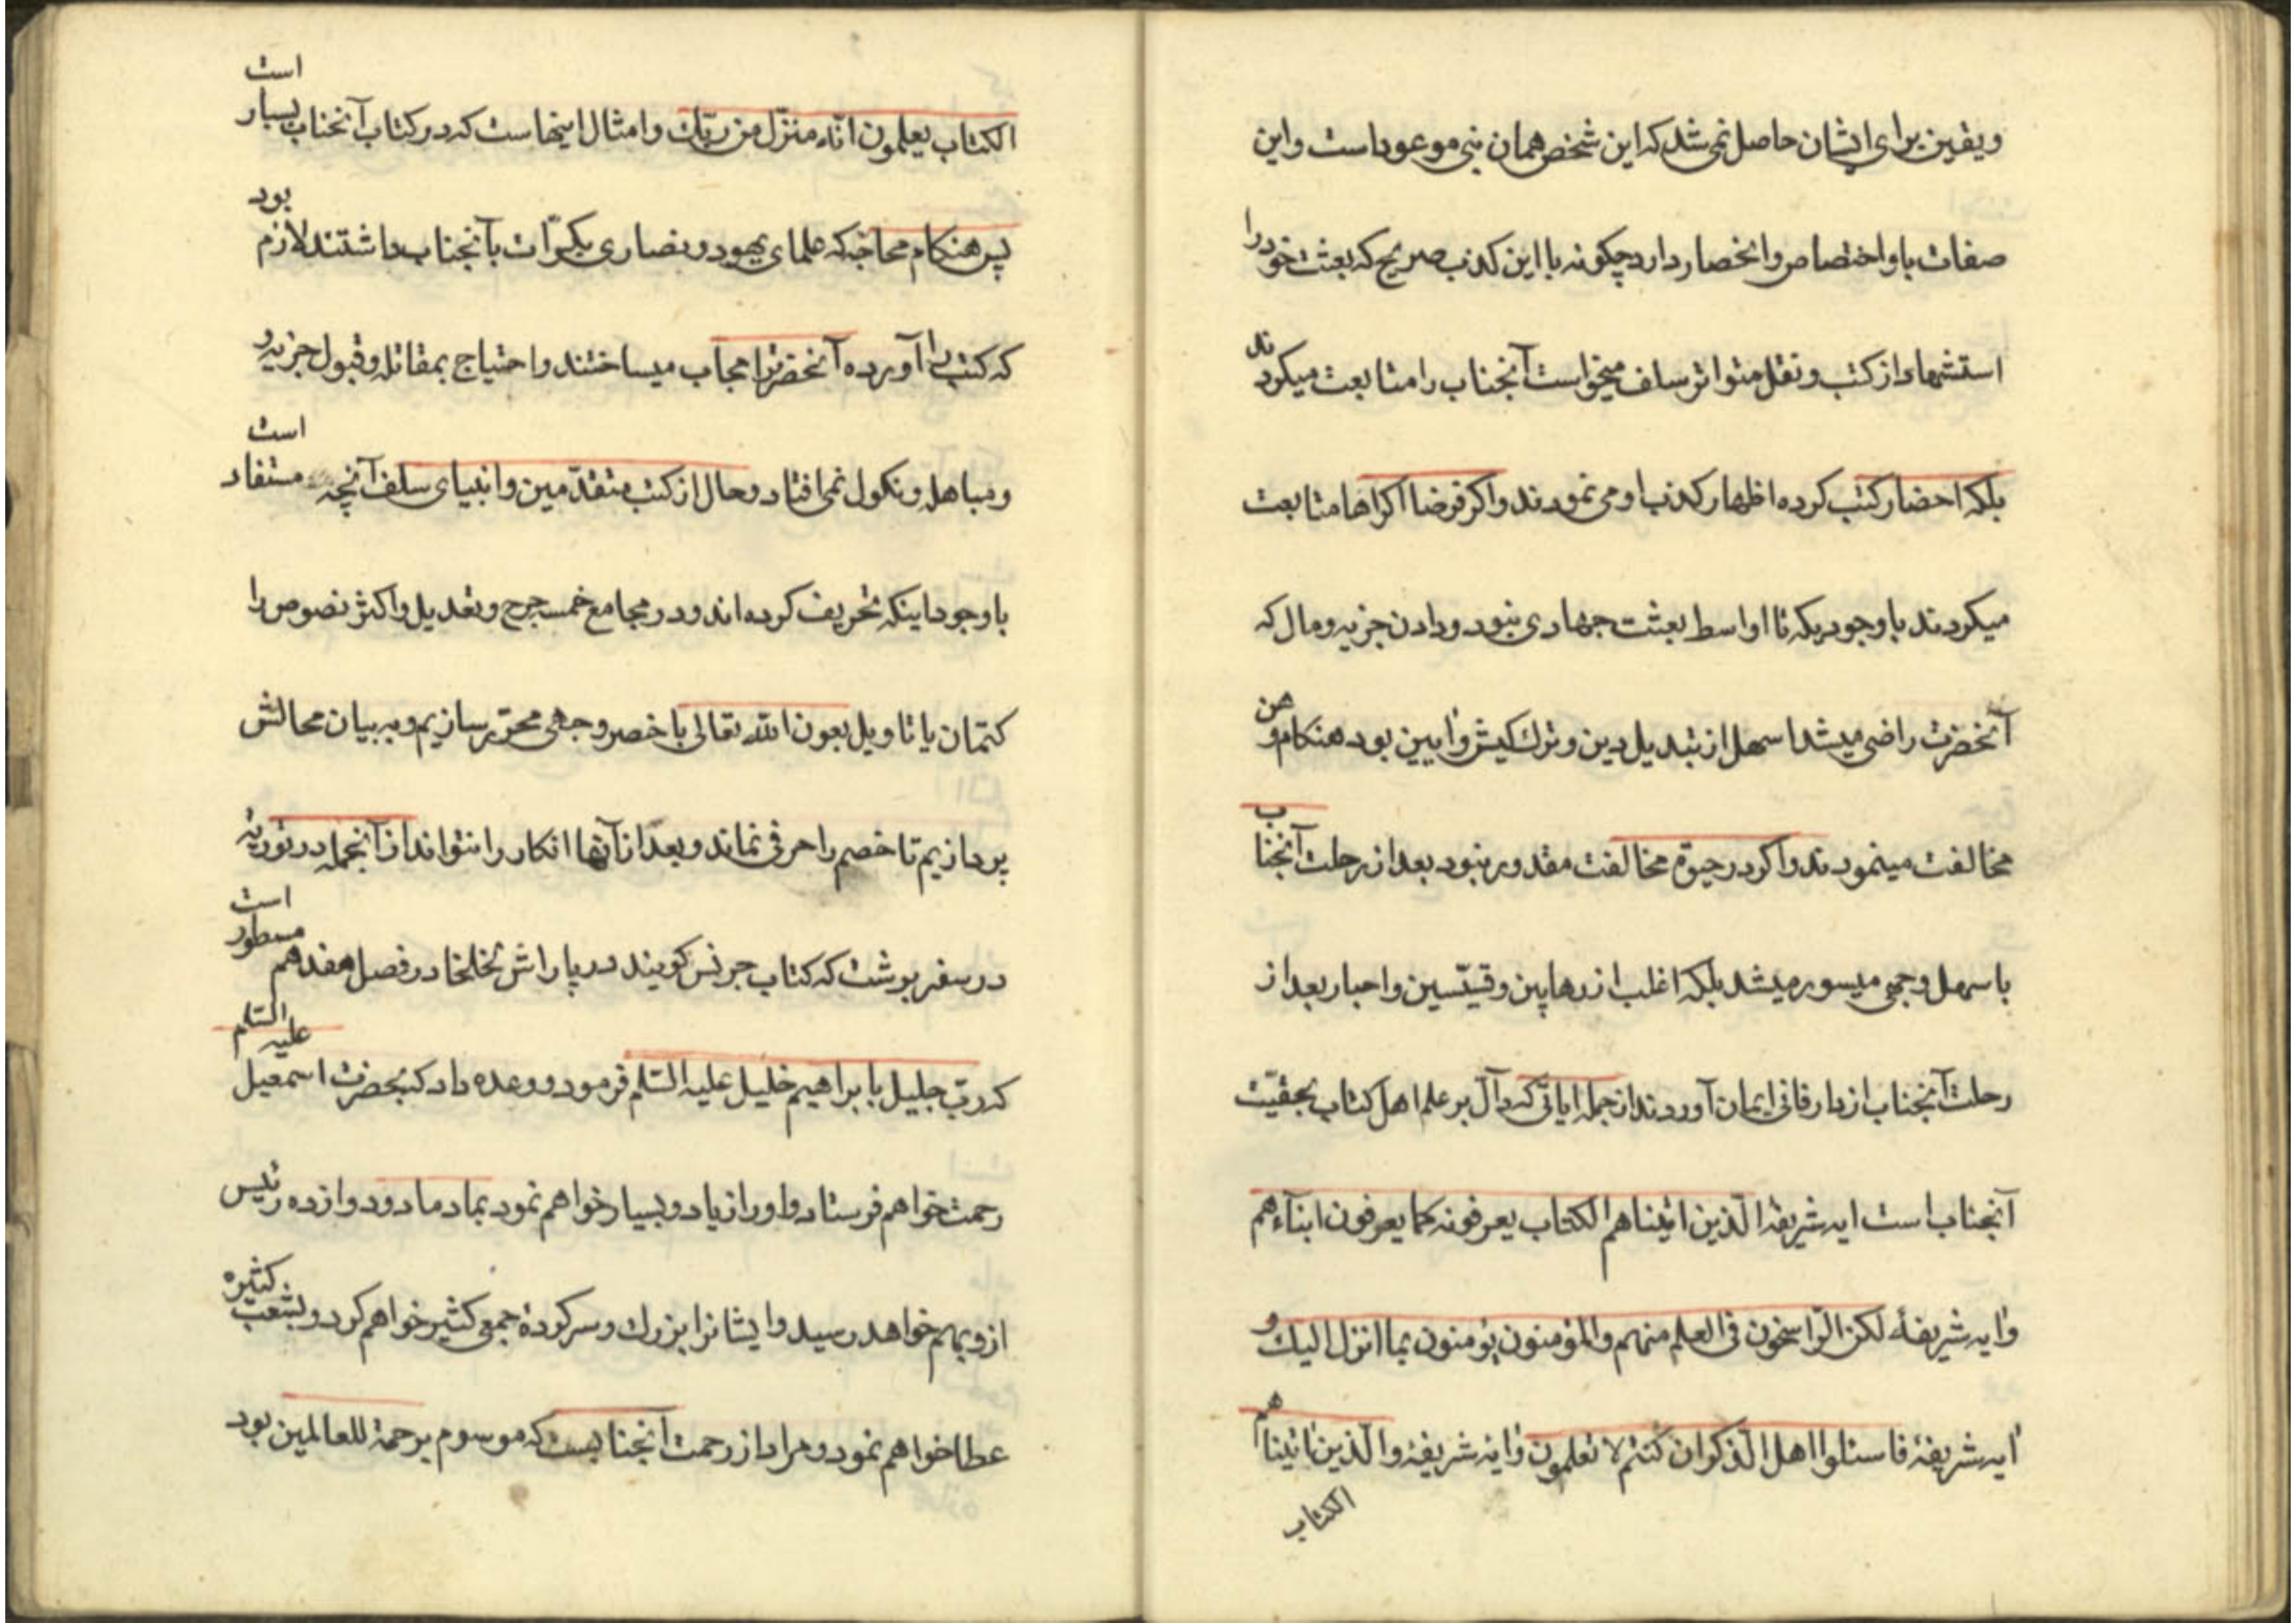 ویقین برای ایشان حاصل نمی شد که این شخص همان نبی موعود است و این
صفات باو اختصاص و انحصار دارد چکونه با این کذب صریح که بعثت خود را
استشهاد از کتب و نقل متواتر سلف میخواست آنجناب را متابعت میکردند
بلکه احضار کتب کرده اظهار کذب او می نمودند و اکر فرضا اکراها متابعت
میکردند با وجودیکه تا اواسط بعثت جهادی نبود و دادن جزیه و مال که
آنحضرت راضی میشد اسهل از تبدیل دین و ترك کیش و ایین بود هنکام وهن
مخالفت مینمودند و اکر در حیوة مخالفت مقدور نبود بعد از رحلت آنجناب
باسهل وجهی میسور میشد بلکه اغلب از رهابین و قسیسین و احبار بعد از
رحلت آنجناب از دار فانی ایمان آوردند از جمله ایاتی که دآل بر علم اهل کتاب بحقیت
آنجناب است ایه شریفه الّذین اتیناهم الکتاب یعرفونه کما یعرفون ابنآءهم
و ایه شریفهٔ لکن الرّاسخون فی العلم منهم والمؤمنون یؤمنون بما انزل الیك و
ایه شریفهٔ فاسئلوا اهل الذّکر ان کنتم لا تعلمون و ایه شریفهٔ والّذین اتیناهم
الکتاب
الکتاب یعلمون انّه منزّل من ربّك و امثال اینهاست که در کتاب آنجناب بسیار است
پس هنکام محاجّه که علمای یهود و نصاری بکرّات بآنجناب داشتند لازم بود
که کتب را آورده آنحضرترا مجاب میساختند و احتیاج بمقاتله و قبول جزیه و
و مباهله و نکول نمی افتاد و حال از کتب متقدّمین و انبیای سلف آنچه مستفاد است
با وجود اینکه تحریف کرده اند و در مجامع خمسه جرح و تعدیل و اکثر نصوص را
کتمان یا تاویل بعون الله تعالی باخصر وجهی محرّر سازیم و به بیان محالش
پردازیم تا خصم را حرفی نماند و بعد از آنها انکار را نتواند از آنجمله در توریة
در سفر بوشت که کتاب جرنس کویند در پاراش لخلخا در فصل هفدهم مسطور است
که ربّ جلیل با براهیم خلیل علیه السّلم فرمود و وعده داد که بحضرت اسمعیل علیه السّلم
رحمت خواهم فرستاد و او را زیاد و بسیار خواهم نمود بماد ماد و دوازده رئیس
از و بهم خواهد رسید و ایشانرا بزرك و سرکردهٔ جمعی کثیر خواهم کرد و بشعب کثیره
عطا خواهم نمود و مراد از رحمت آنجنابست که موسوم برحمة للعالمین بود